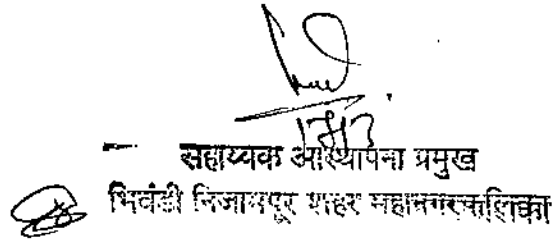 सहाय्यक आस्थापना प्रमुख
भिवंडी निजामपूर शहर महानगरपालिका